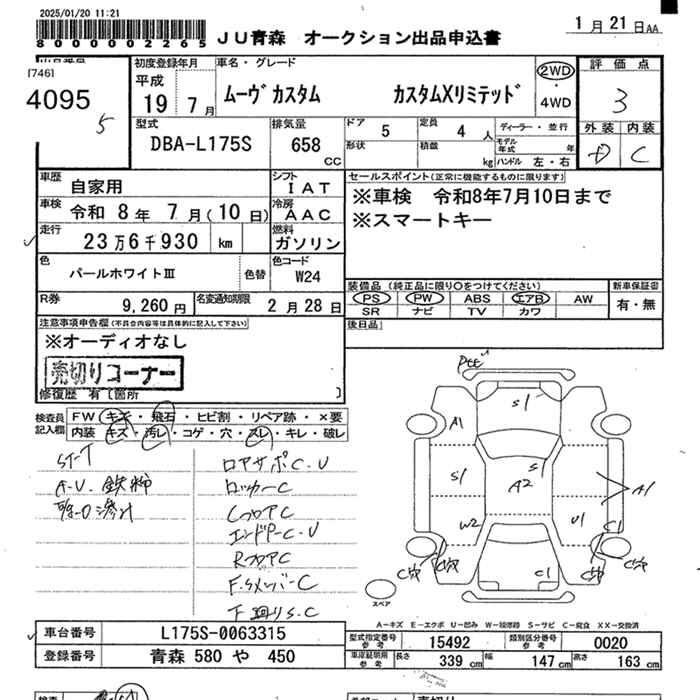 2025/01/20 11:21
8000002265
JU青森 オークション出品申込書
1月21日AA
[746]
4095
5
初度登録年月
平成
19年7月
車名・グレード
ムーヴカスタム カスタムXリミテッド
2WD・4WD
評価点
3
外装 内装
D C
型式
DBA-L175S
排気量
658
CC
ドア 5
定員 4人
ディーラー・並行
形状
積載 kg
モデル年式 年
ハンドル 左・右
車歴
自家用
シフト
IAT
セールスポイント(正常に機能するものに限ります)
※車検 令和8年7月10日まで
※スマートキー
車検
令和 8年 7月(10日)
冷房
AAC
走行
23万6千930 km
燃料
ガソリン
色
パールホワイトⅢ
色替
色コード
W24
装備品(純正品に限り○をつけてください)
新車保証書
PS PW ABS エアB AW
有・無
SR ナビ TV カワ
R券
9,260円
名変通知期限
2月28日
後日品
注意事項申告欄(不具合内容等は具体的に記入して下さい)
※オーディオなし
売切りコーナー
修復歴 有[箇所 ]
検査員記入欄
FW キズ・飛石・ヒビ割・リペア跡・×要
内装 キズ・汚レ・コゲ・穴・スレ・キレ・破レ
ロアサポC.U
ロッカーC
LフロアC
エンドP-C.U
RフロアC
下廻りS.C
A1
S1
S1
S1
A2
A1
W2
U1
C1
C1
スペア
A-キズ E-エクボ U-凹み W-補修跡 S-サビ C-腐食 XX-交換済
車台番号
L175S-0063315
登録番号
青森 580 や 450
型式指定番号 参考
15492
類別区分番号 参考
0020
車庫証明用 参考
長さ 339 cm
幅 147 cm
高さ 163 cm